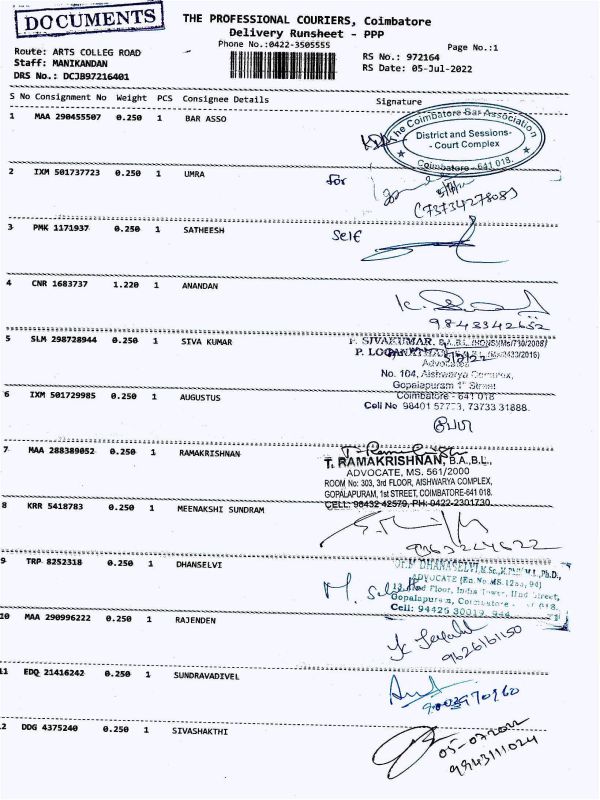 DOCUMENTS
THE PROFESSIONAL COURIERS, Coimbatore
Delivery Runsheet - PPP
Phone No.:0422-3505555
Page No.:1
Route: ARTS COLLEG ROAD
Staff: MANIKANDAN
DRS No.: DCJB97216401
RS No.: 972164
RS Date: 05-Jul-2022
S No Consignment No Weight PCS Consignee Details Signature
1 MAA 290455507 0.250 1 BAR ASSO
The Coimbatore Bar Association
District and Sessions-
- Court Complex
Coimbatore - 641 018.
2 IXM 501737723 0.250 1 UMRA
for
(7373427808)
3 PMK 1171937 0.250 1 SATHEESH
Self
4 CNR 1683737 1.220 1 ANANDAN
9843342652
5 SLM 298728944 0.250 1 SIVA KUMAR
P. SIVAKUMAR, B.A.,B.L.,(HONS)(Ms/730/2008)
P. LOGANATHAN
Advocates
No. 104, Aishwarya Complex,
Gopalapuram 1st Street
Coimbatore - 641 018
Cell No 98401 57773, 73733 31888.
6 IXM 501729985 0.250 1 AUGUSTUS
7 MAA 288389052 0.250 1 RAMAKRISHNAN
T. RAMAKRISHNAN, B.A.,B.L.,
ADVOCATE, MS. 561/2000
ROOM No: 303, 3rd FLOOR, AISHWARYA COMPLEX,
GOPALAPURAM, 1st STREET, COIMBATORE-641 018.
CELL: 98432 42579, PH: 0422-2301730
8 KRR 5418783 0.250 1 MEENAKSHI SUNDRAM
9 TRP 8252318 0.250 1 DHANSELVI
DHANASELVI
ADVOCATE
Floor, India Tower, IInd Street,
Gopalapuram, Coimbatore
Cell: 94425 30019
10 MAA 290996222 0.250 1 RAJENDEN
9626161150
11 EDQ 21416242 0.250 1 SUNDRAVADIVEL
12 DDG 4375240 0.250 1 SIVASHAKTHI
05-07-2022
9943111024